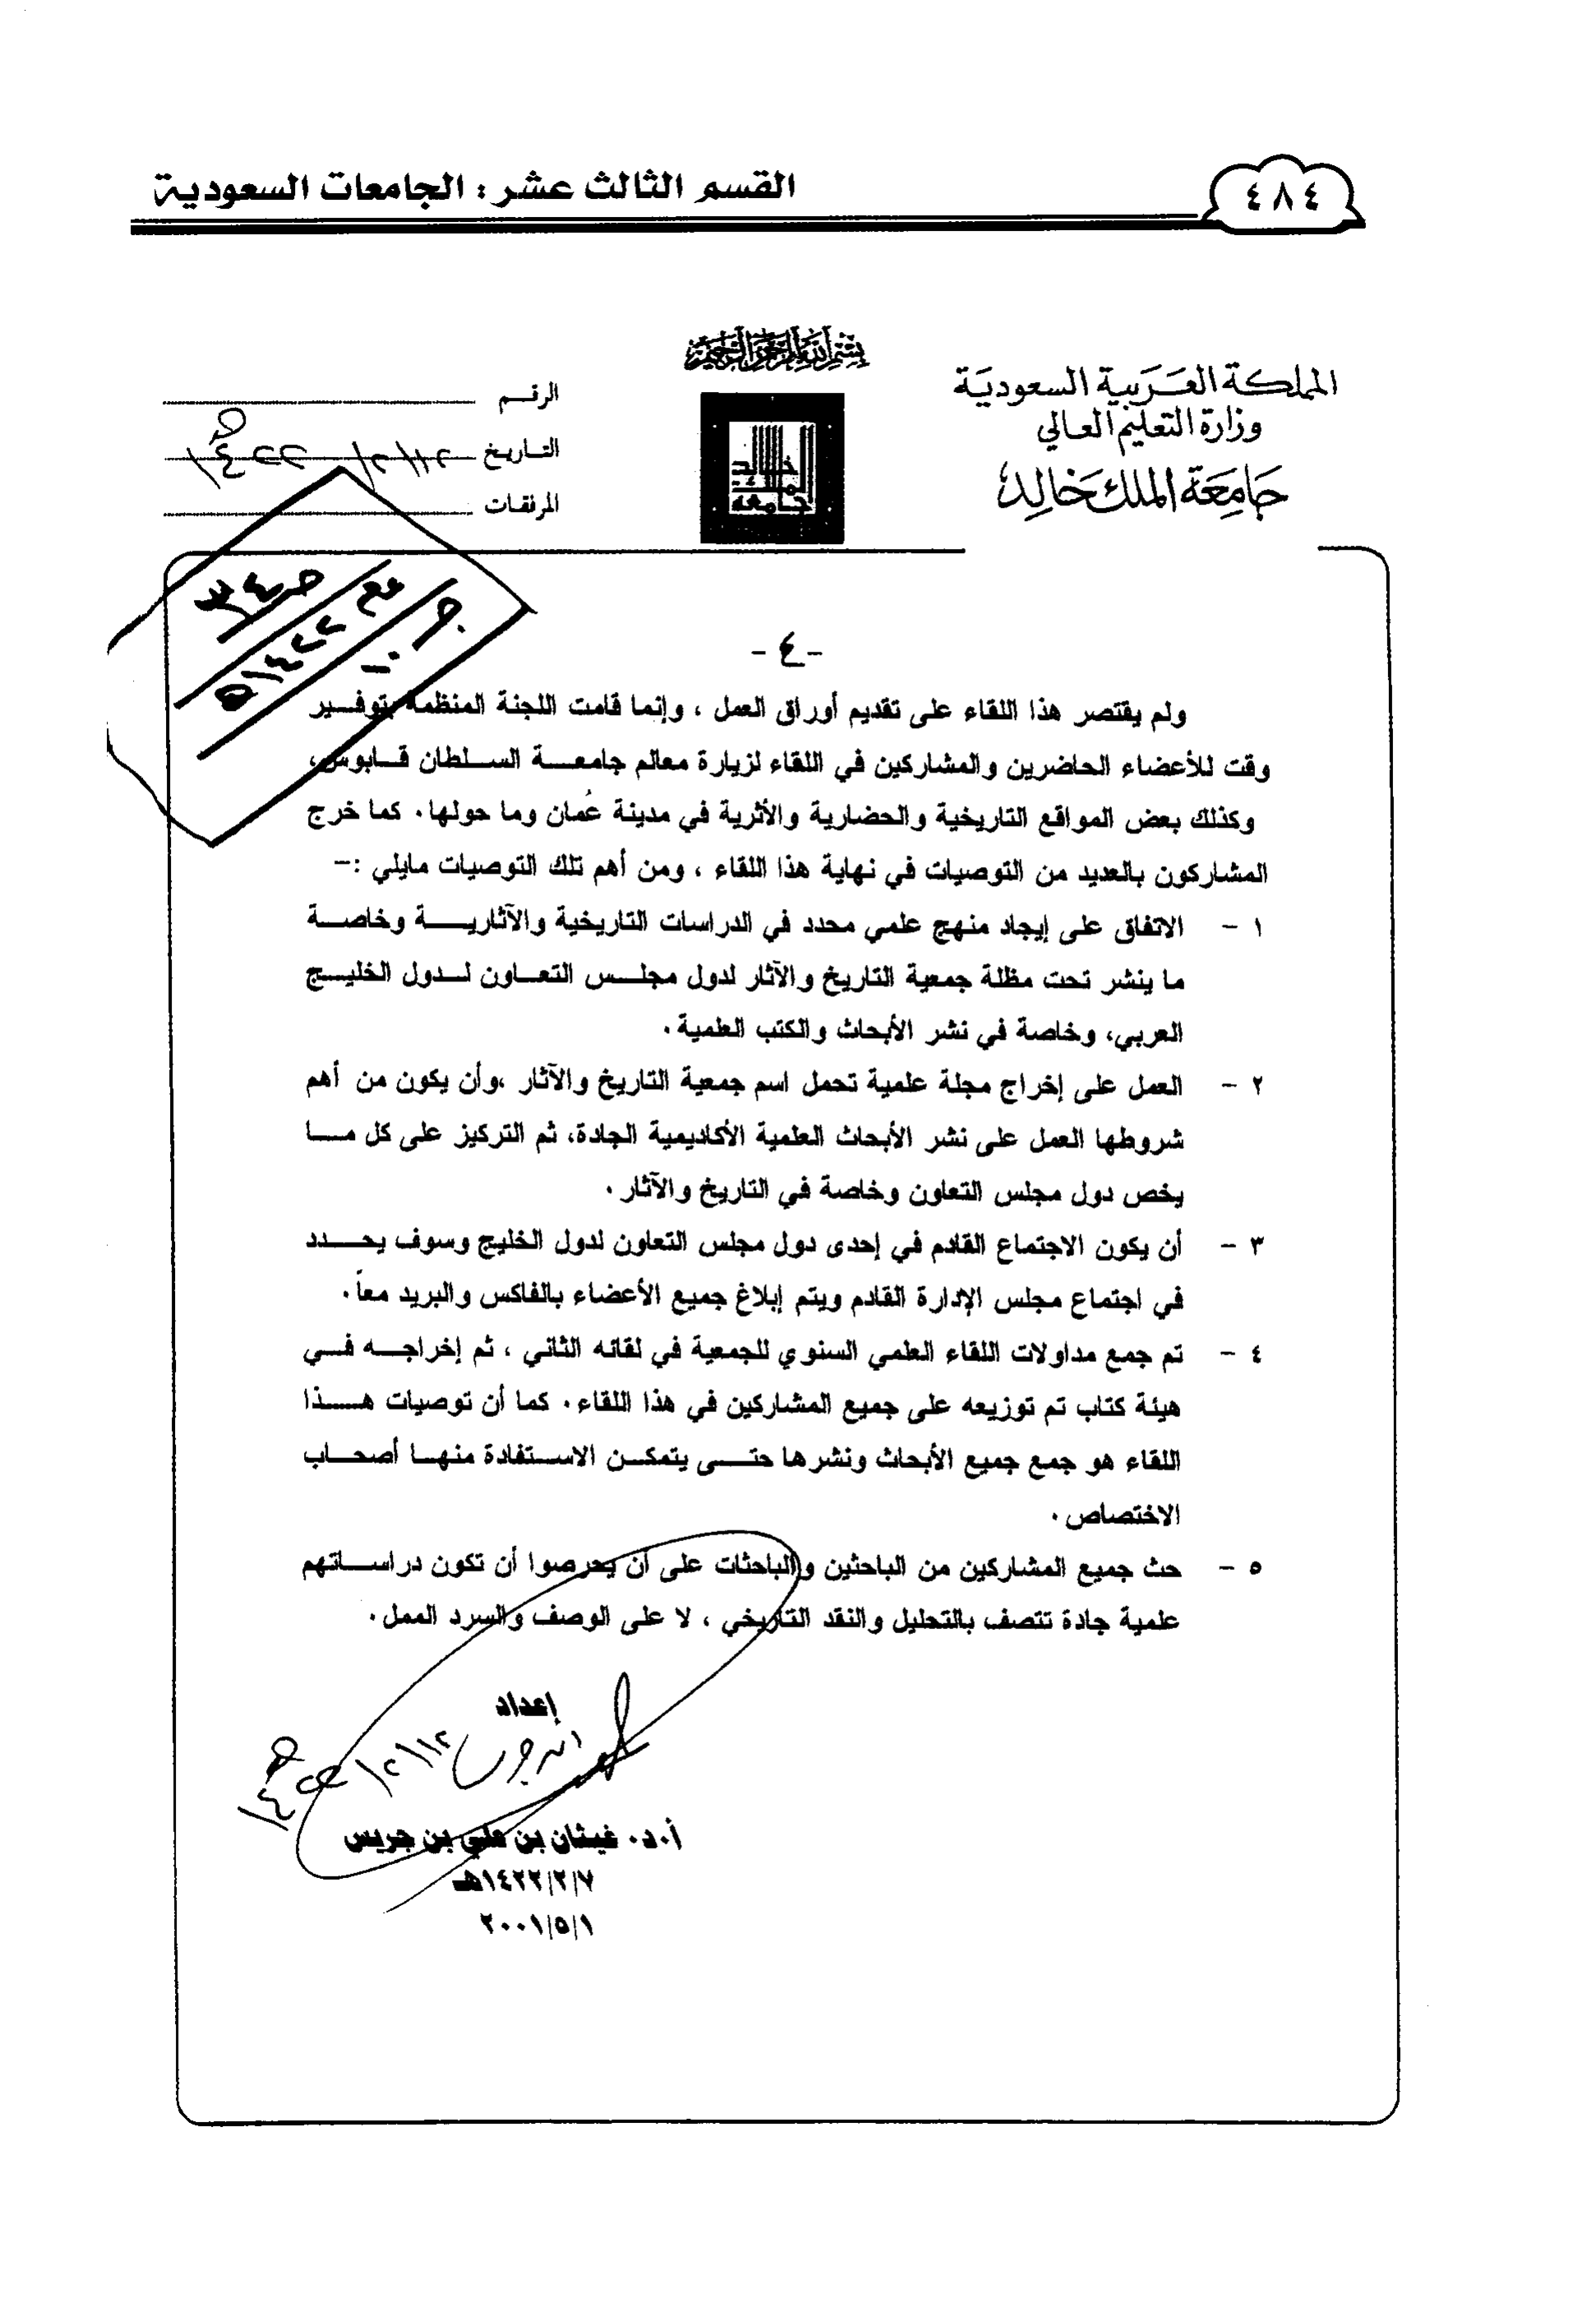 ٤٨٤
القسم الثالث عشر : الجامعات السعودية
بسم الله الرحمن الرحيم
المملكة العربية السعودية
وزارة التعليم العالي
جامعة الملك خالد
جامعة الملك خالد
الرقم
التاريخ ١٢/٢/١٤٢٢هـ
المرفقات
١٤٢٢هـ
-٤-
ولم يقتصر هذا اللقاء على تقديم أوراق العمل ، وإنما قامت اللجنة المنظمة بتوفير
وقت للأعضاء الحاضرين والمشاركين في اللقاء لزيارة معالم جامعة السلطان قابوس،
وكذلك بعض المواقع التاريخية والحضارية والأثرية في مدينة عُمان وما حولها. كما خرج
المشاركون بالعديد من التوصيات في نهاية هذا اللقاء ، ومن أهم تلك التوصيات مايلي :-
١ - الاتفاق على إيجاد منهج علمي محدد في الدراسات التاريخية والآثارية وخاصة
ما ينشر تحت مظلة جمعية التاريخ والآثار لدول مجلس التعاون لدول الخليج
العربي، وخاصة في نشر الأبحاث والكتب العلمية.
٢ - العمل على إخراج مجلة علمية تحمل اسم جمعية التاريخ والآثار ،وأن يكون من أهم
شروطها العمل على نشر الأبحاث العلمية الأكاديمية الجادة، ثم التركيز على كل ما
يخص دول مجلس التعاون وخاصة في التاريخ والآثار.
٣ - أن يكون الاجتماع القادم في إحدى دول مجلس التعاون لدول الخليج وسوف يحدد
في اجتماع مجلس الإدارة القادم ويتم إبلاغ جميع الأعضاء بالفاكس والبريد معاً.
٤ - تم جمع مداولات اللقاء العلمي السنوي للجمعية في لقائه الثاني ، ثم إخراجه في
هيئة كتاب تم توزيعه على جميع المشاركين في هذا اللقاء. كما أن توصيات هذا
اللقاء هو جمع جميع الأبحاث ونشرها حتى يتمكن الاستفادة منها أصحاب
الاختصاص.
٥ - حث جميع المشاركين من الباحثين والباحثات على أن يحرصوا أن تكون دراساتهم
علمية جادة تتصف بالتحليل والنقد التاريخي ، لا على الوصف والسرد الممل.
إعداد
١٢/٢/١٤٢٢هـ
أ.د. غيثان بن علي بن جريس
١٤٢٢/٢/٧هـ
٢٠٠١/٥/١